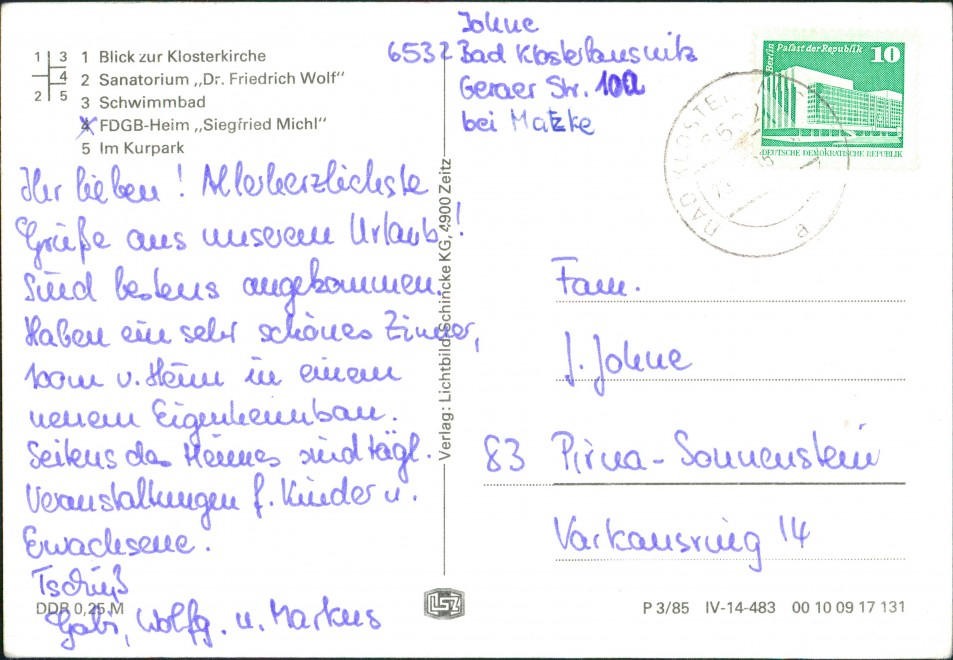 1 3
4
2 5
1 Blick zur Klosterkirche
2 Sanatorium „Dr. Friedrich Wolf“
3 Schwimmbad
4 FDGB-Heim „Siegfried Michl“
5 Im Kurpark
Johne
6532 Bad Klosterlausnitz
Geraer Str. 10a
bei Matzke
Berlin Palast der Republik 10
DEUTSCHE DEMOKRATISCHE REPUBLIK
BAD KLOSTER
6532
Ihr lieben! Allerherzlichste
Grüße aus unserem Urlaub!
Sind bestens angekommen.
Haben ein sehr schönes Zimmer,
100m v. Heim in einem
neuem Eigenheimbau.
Seitens des Heimes sind tägl.
Veranstaltungen f. Kinder u.
Erwachsene.
Tschüß
Gabi, Wolfg. u. Markus
DDR 0,25 M
Verlag: Lichtbild-Schincke KG, 4900 Zeitz
LSZ
Fam.
J. Johne
83 Pirna-Sonnenstein
Varkausring 14
P 3/85 IV-14-483 00 10 09 17 131